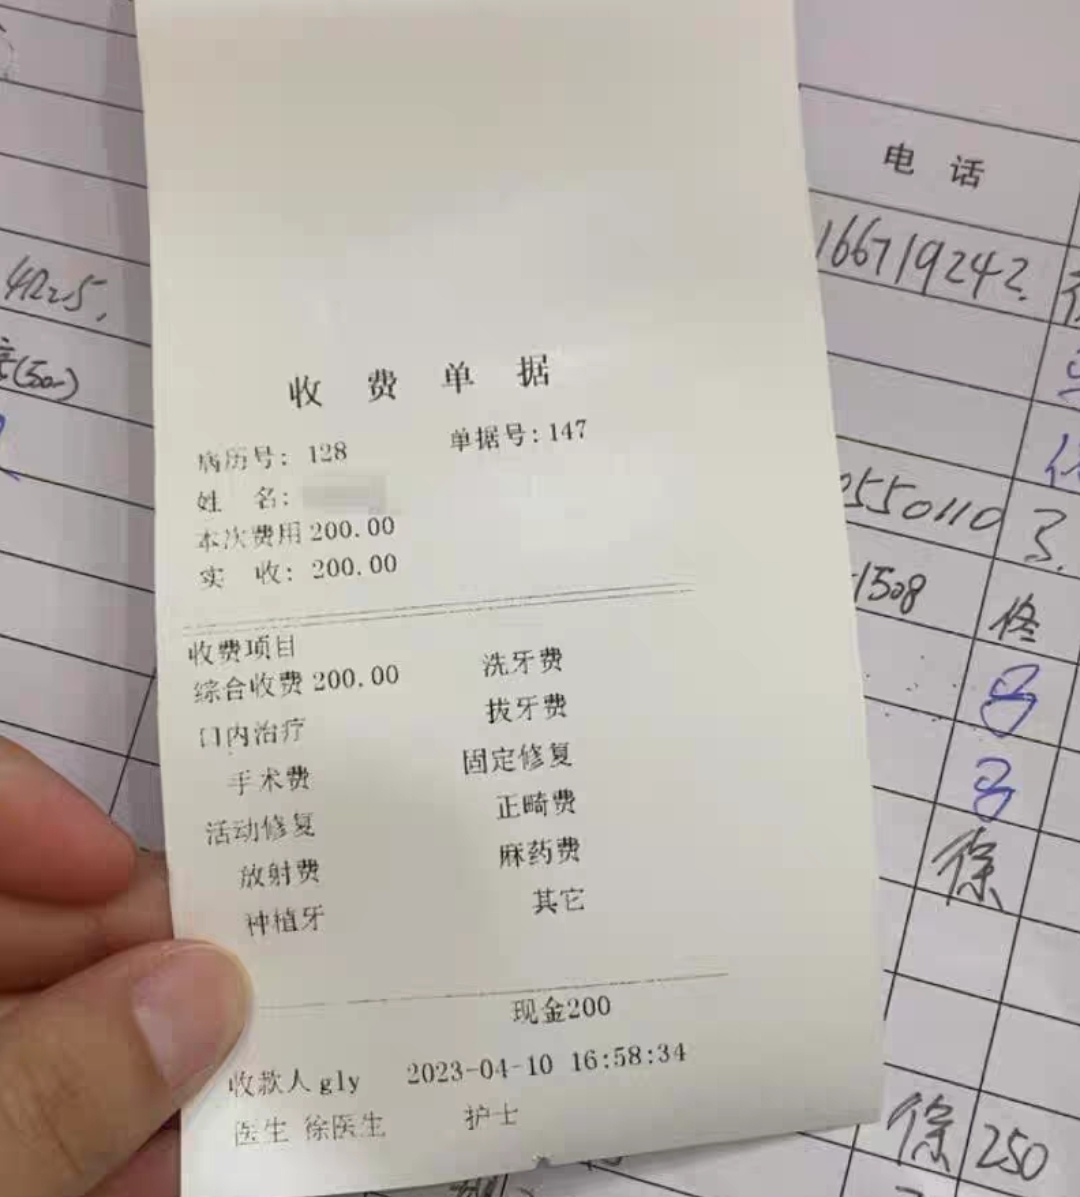 收费单据
病历号: 128 单据号: 147
姓 名:
本次费用 200.00
实 收: 200.00
收费项目
综合收费 200.00 洗牙费
口内治疗 拔牙费
手术费 固定修复
活动修复 正畸费
放射费 麻药费
种植牙 其它
现金200
收款人 gly 2023-04-10 16:58:34
医生 徐医生 护士
电 话
166719242
550110
3.
1508
徐
徐 250